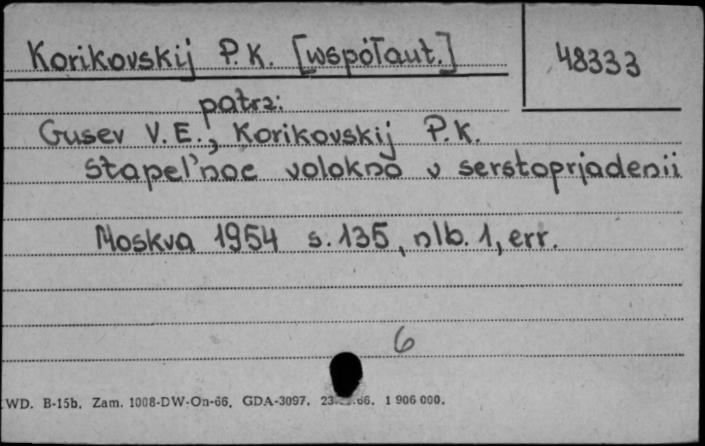 Korikovskij P.K. [współaut.]
48333
patrz:
Gusev V.E., Korikovskij P.K.
Stapel'noe volokno v serstoprjadenii
Moskva 1954 s. 135, nlb. 1, err.
6
WD. B-15b. Zam. 1008-DW-On-66. GDA-3097. 66. 1 906 000.